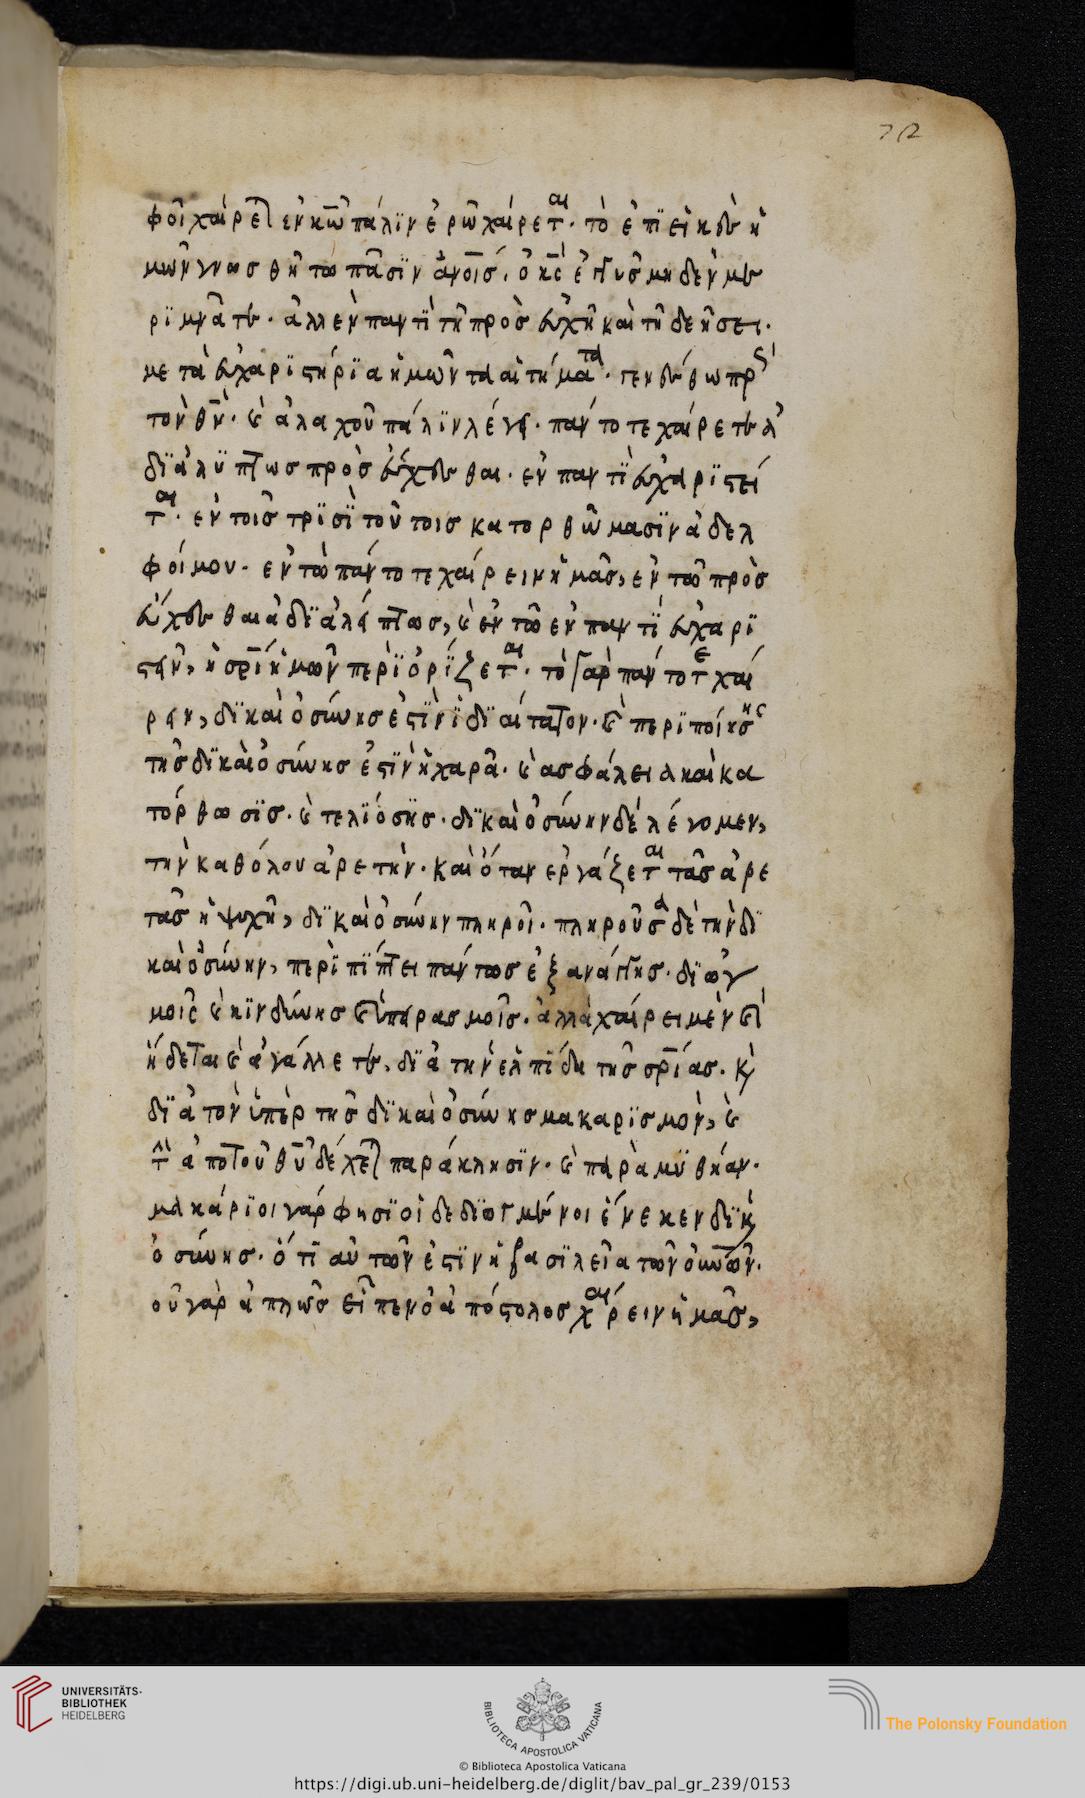 72
φοῖ χαίρετε ἐν κω πάλιν ἐρῶ χαίρεται· τὸ ἐπιεικὲς ἡ
μῶν γνωσθῆτω πᾶσιν ἀνοις. ὁ κς ἐγγὺς μηδὲν με
ριμνᾶτε. ἀλλ' ἐν παντὶ τῆ προσευχῆ καὶ τῆ δεήσει.
μετὰ εὐχαριστηρία ἡμῶν τὰ αἰτήματα. γενέσθω πρὸς
τὸν θν. καὶ ἀλαχοῦ πάλιν λέγει. πάντοτε χαίρετε ἀ
διαλύπτως προσεύχεσθαι. ἐν παντὶ εὐχαριστεί
ται. ἐν τοῖς τρισὶ τούτοις κατορθῶμασιν ἀδελ
φοί μου. ἐν τῶ πάντοτε χαίρειν ἡμᾶς, ἐν τῶ προσ
εύχεσθαι ἀδιαλήπτως, καὶ ἐν τῶ ἐν παντὶ εὐχαρι
στεῖν, ἡ σρία ἡμῶν περιορίζεται. τὸ γὰρ πάντοτε χαί
ρειν, δικαιοσύνης ἐστὶν ἰδιαίτατον. καὶ περιποίησης
τῆς δικαιοσύνης ἐστὶν ἡ χαρᾶ. καὶ ασφάλεια καὶ κα
τόρθωσις. καὶ τελιόσης. δικαιοσύνην δὲ λέγομεν,
τὴν καθόλου ἀρετὴν. καὶ ὅταν εργάζεται τὰς ἀρε
τὰς ἡ ψυχῆ, δικαιοσύνην πληροῖ. πληροῦσα δὲ τὴν δι
καιοσύνην, περιπίπτει πάντως ἐξ ανάγκης. διωγ
μοῖς καὶ κινδύνης καὶ πηρασμοῖς. ἀλλὰ χαίρει μὲν καὶ
ἥδεται καὶ ἀγάλλετε, διὰ τὴν ἐλπίδα τῆς σρίας. καὶ
διὰ τὸν ὑπὲρ τῆς δικαιοσύνης μακαρισμὸν, καὶ
τὴν ἀπὸ τοῦ θυ δέχεται παράκλησιν. καὶ παραμυθήαν.
μακάριοι γάρ φησι οἱ δεδιωγμένοι ἕνεκεν δικαι
οσύνης. ὅτι αὐτῶν ἐστιν ἡ βασιλεῖα τῶν οὐνῶν.
οὐ γὰρ ἁπλῶς εἶπεν ὁ ἀπόστολος χαίρειν ἡμᾶς,
UNIVERSITÄTS-
BIBLIOTHEK
HEIDELBERG
BIBLIOTECA APOSTOLICA VATICANA
The Polonsky Foundation
© Biblioteca Apostolica Vaticana
https://digi.ub.uni-heidelberg.de/diglit/bav_pal_gr_239/0153